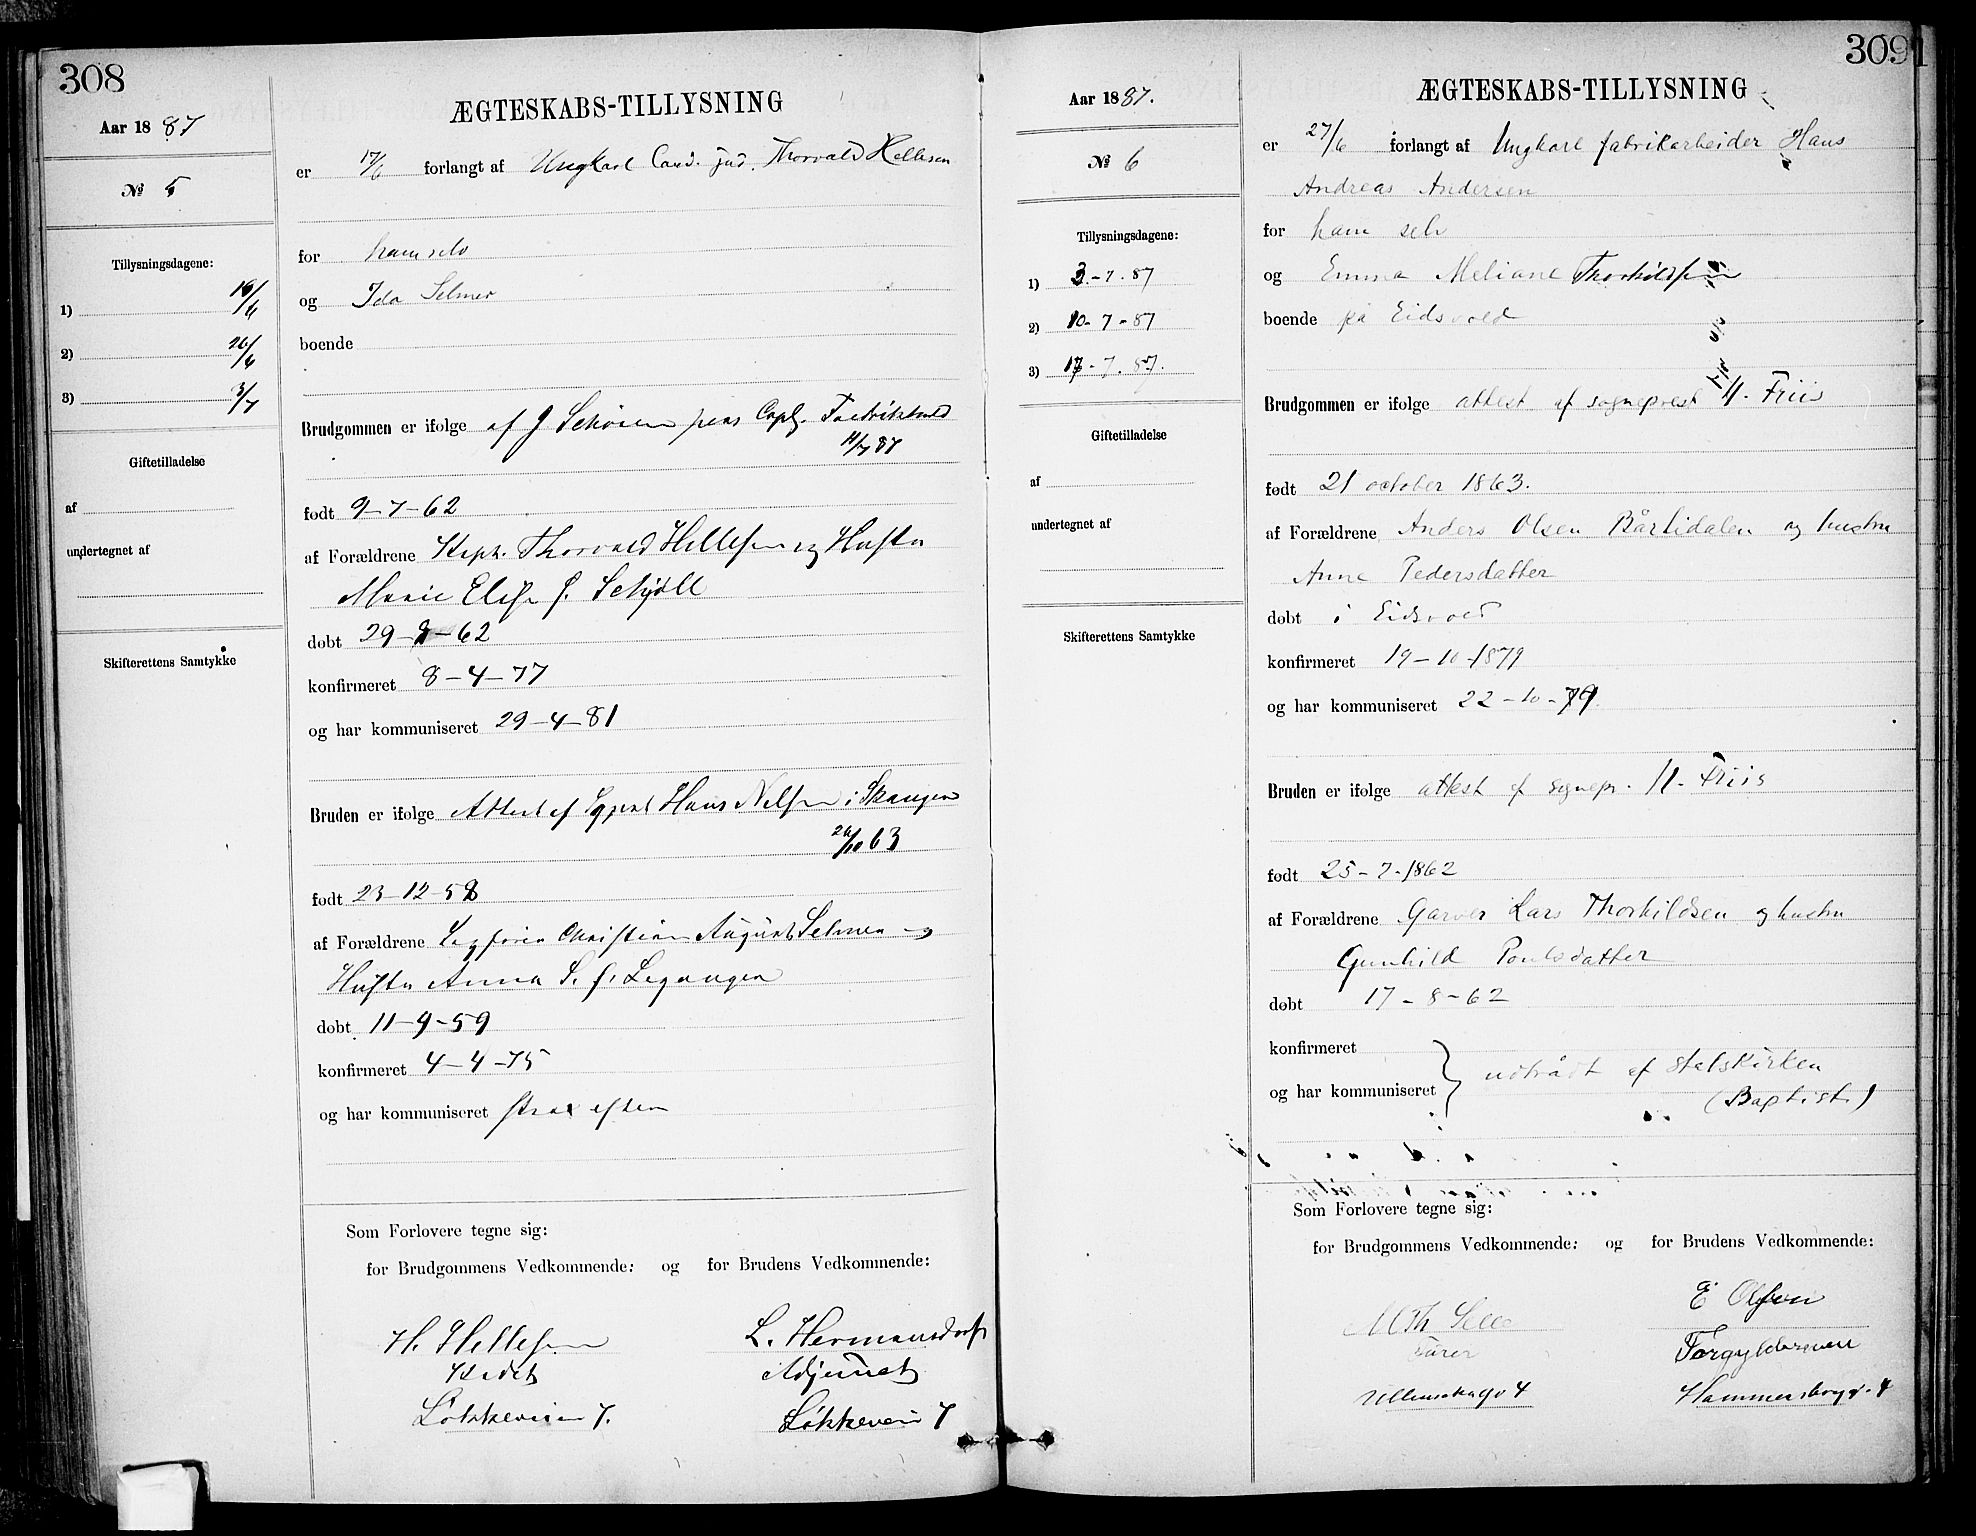 308
Aar 1887
№ 5
Tillysningsdagene:
1) 19/6
2) 26/6
3) 3/7
Giftetilladelse
af
undertegnet af
Skifterettens Samtykke
ÆGTESKABS-TILLYSNING
er 17/6 forlangt af Ungkarl Cand. jud. Thorvald Hellesen
for ham selv
og Ida Selmer
boende
Brudgommen er ifølge af J Schøien pers Capl. Fredrikshald
født 9-7-62
af Forældrene Kapt. Thorvald Hellesen og Hustru
Marie Elise f. Schjøll
døbt 29-8-62
konfirmeret 8-4-77
og har kommuniseret 29-4-81
Bruden er ifølge Attest af Sgprst Hans Nilsen i Skaugen
født 23-12-58
af Forældrene Sagfører Christian August Selmer og
Hustru Anna S. f. Leganger
døbt 11-9-59
konfirmeret 4-4-75
og har kommuniseret strax efter
Som Forlovere tegne sig:
for Brudgommens Vedkommende: og for Brudens Vedkommende:
H. Hellesen L. Hermansdorff
Kadet Adjunct
Løkkeveien 7. Løkkevei 7
309
Aar 1887.
№ 6
Tillysningsdagene:
1) 3-7.87
2) 10-7-87
3) 17-7.87.
Giftetilladelse
af
undertegnet af
Skifterettens Samtykke
ÆGTESKABS-TILLYSNING
er 27/6 forlangt af Ungkarl fabrikarbeider Hans
Andreas Andersen
for ham selv
og Emma Meliane Thorkildsen
boende på Eidsvold
Brudgommen er ifølge attest af sogneprest H. Friis
født 21 october 1863.
af Forældrene Anders Olsen Bårlidalen og hustru
Anne Pedersdatter
døbt i Eidsvold
konfirmeret 19-10-1879
og har kommuniseret 22-10-79.
Bruden er ifølge attest af sognepr. H. Friis
født 25-7-1862
af Forældrene Garver Lars Thorkildsen og hustru
Gunhild Poulsdatter
døbt 17-8-62
konfirmeret
og har kommuniseret udtrådt af statskirken
(Baptist)
Som Forlovere tegne sig:
for Brudgommens Vedkommende: og for Brudens Vedkommende:
E Olsen
Forgyldersven
Hammersborgg. 4